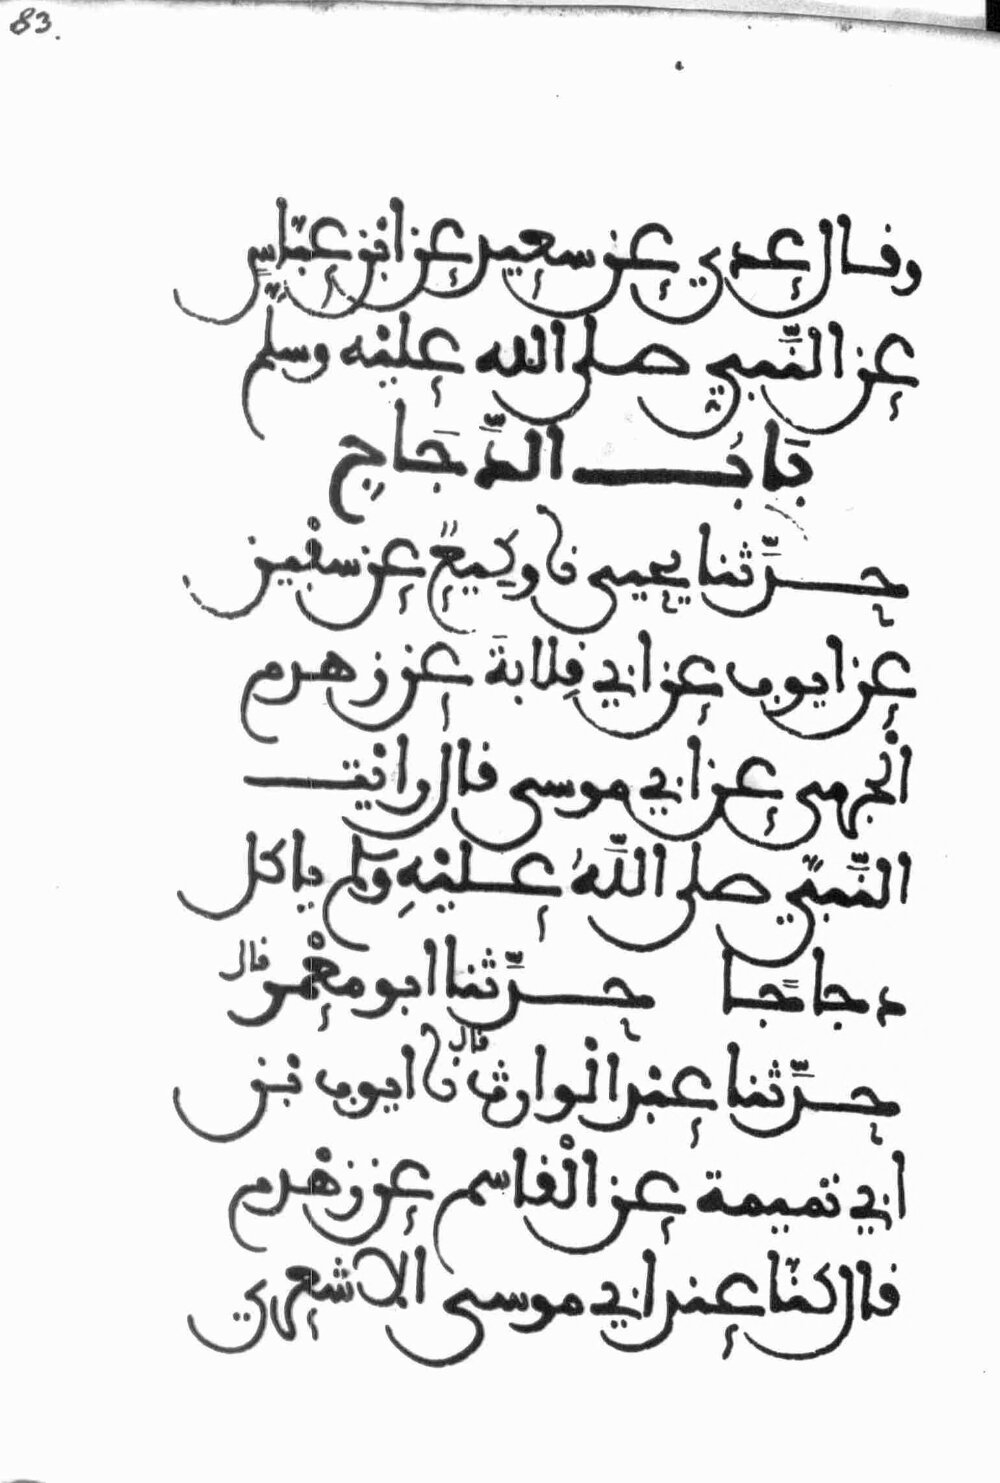 83.
وقال عدي عن سعيد عن ابن عباس
عن النبي صلى الله عليه وسلم
باب الدجاج
حدثنا يحيى نا وكيع عن سفين
عن ايوب عن ابي قلابة عن زهدم
الجرمي عن ابي موسى قال رايت
النبي صلى الله عليه وسلم ياكل
دجاجا حدثنا ابو معمر قال
حدثنا عبد الوارث قال نا ايوب بن
ابي تميمة عن القاسم عن زهدم
قال كنا عند ابي موسى الاشعري